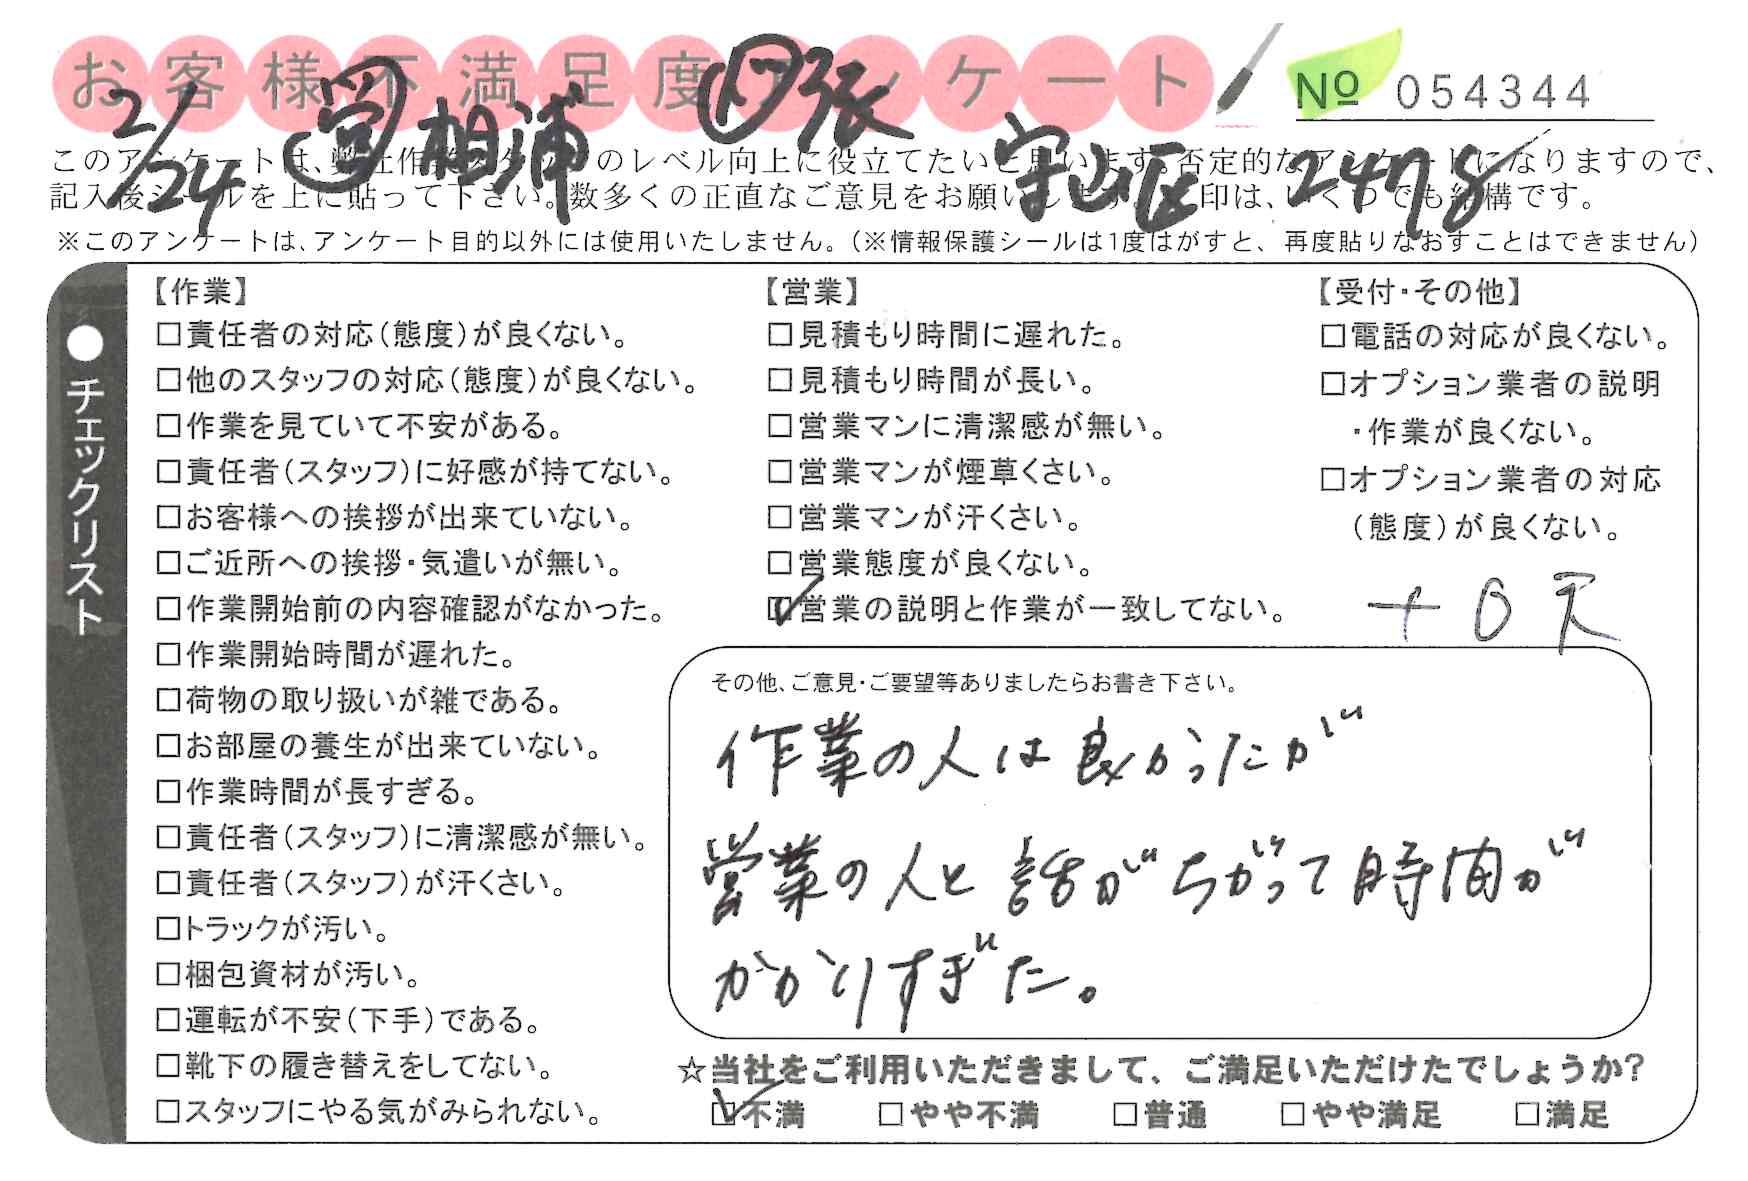 お客様不満足度アンケート
№ 054344
2/24 営 相浦 守山区 2478
このアンケートは、弊社作業スタッフのレベル向上に役立てたいと思います。否定的なアンケートになりますので、
記入後シールを上に貼って下さい。数多くの正直なご意見をお願いします。印は、いくつでも結構です。
※このアンケートは、アンケート目的以外には使用いたしません。（※情報保護シールは1度はがすと、再度貼りなおすことはできません）
●チェックリスト
【作業】
□責任者の対応（態度）が良くない。
□他のスタッフの対応（態度）が良くない。
□作業を見ていて不安がある。
□責任者（スタッフ）に好感が持てない。
□お客様への挨拶が出来ていない。
□ご近所への挨拶・気遣いが無い。
□作業開始前の内容確認がなかった。
□作業開始時間が遅れた。
□荷物の取り扱いが雑である。
□お部屋の養生が出来ていない。
□作業時間が長すぎる。
□責任者（スタッフ）に清潔感が無い。
□責任者（スタッフ）が汗くさい。
□トラックが汚い。
□梱包資材が汚い。
□運転が不安（下手）である。
□靴下の履き替えをしてない。
□スタッフにやる気がみられない。
【営業】
□見積もり時間に遅れた。
□見積もり時間が長い。
□営業マンに清潔感が無い。
□営業マンが煙草くさい。
□営業マンが汗くさい。
□営業態度が良くない。
☑営業の説明と作業が一致してない。
【受付・その他】
□電話の対応が良くない。
□オプション業者の説明
・作業が良くない。
□オプション業者の対応
（態度）が良くない。
その他、ご意見・ご要望等ありましたらお書き下さい。
作業の人は良かったが
営業の人と話がちがって時間が
かかりすぎた。
☆当社をご利用いただきまして、ご満足いただけたでしょうか？
☑不満 □やや不満 □普通 □やや満足 □満足